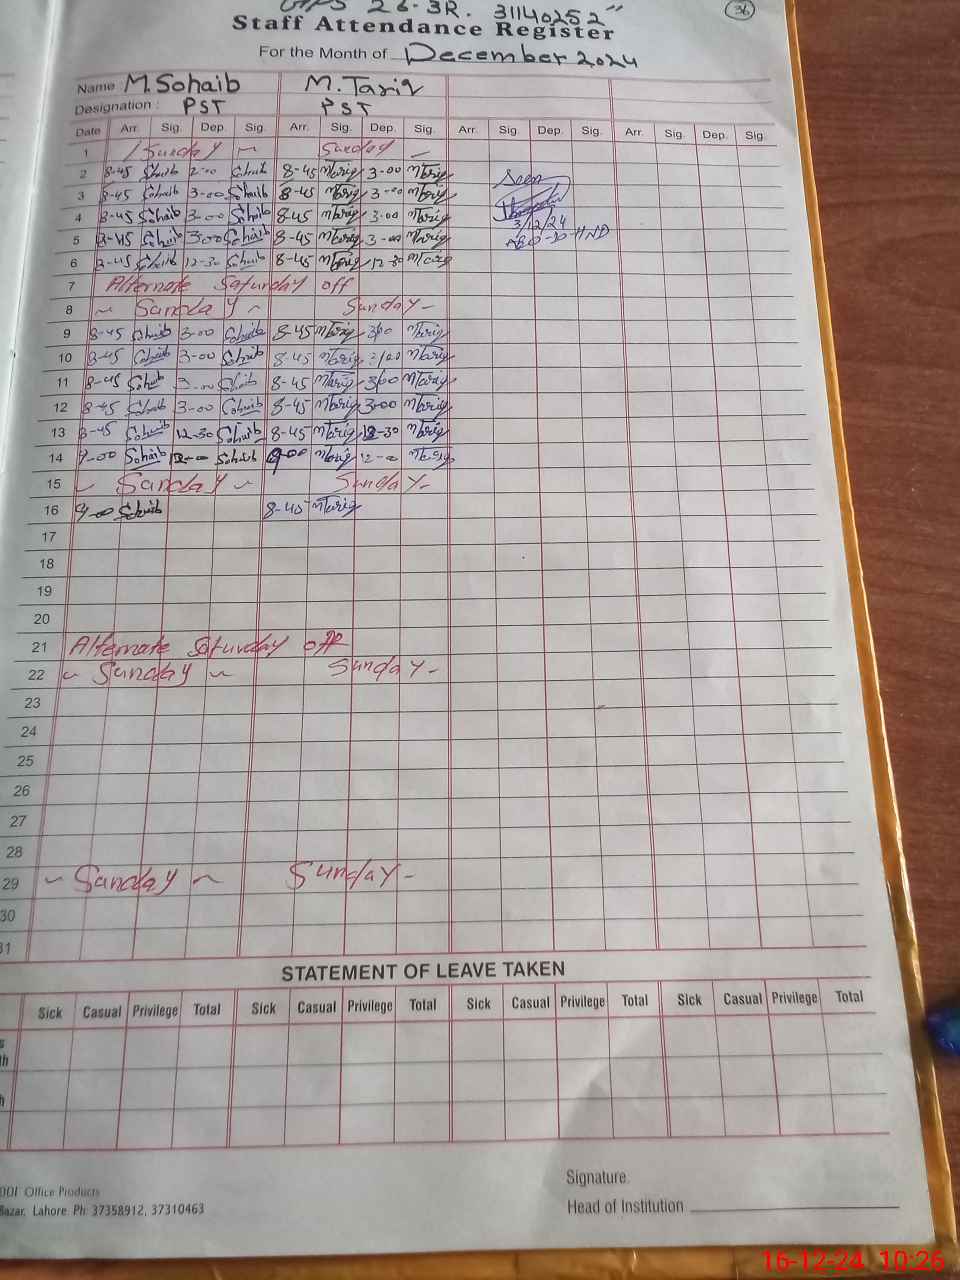 GPS 26-3R. 31140252"
36
Staff Attendance Register
For the Month of December 2024
Name M. Sohaib M. Tariq
Designation : PST PST
Date Arr. Sig. Dep. Sig. Arr. Sig. Dep. Sig. Arr. Sig. Dep. Sig. Arr. Sig. Dep. Sig.
1 Sunday ~ Sunday —
2 8-45 Sohaib Sohaib 8-45 MTariq 3-00 MTariq Seen
3 8-45 Sohaib 3-00 Sohaib 8-45 MTariq 3-00 MTariq
4 8-45 Sohaib 3-00 Sohaib 8-45 MTariq 3-00 MTariq 3/12/24
5 8-45 Sohaib 3-00 Sohaib 8-45 MTariq 3-00 MTariq
6 8-45 Sohaib 12-30 Sohaib 8-45 MTariq 12-30 MTariq
7 Alternate Saturday off
8 ~ Sunday ~ Sunday -
9 8-45 Sohaib 3-00 Sohaib 8-45 MTariq 3/00 MTariq
10 8-45 Sohaib 3-00 Sohaib 8-45 MTariq 3/00 MTariq
11 8-45 Sohaib 3-00 Sohaib 8-45 MTariq 3/00 MTariq
12 8-45 Sohaib 3-00 Sohaib 8-45 MTariq 3-00 MTariq
13 8-45 Sohaib 12-30 Sohaib 8-45 MTariq 12-30 MTariq
14 9-00 Sohaib 12-00 Sohaib 9-00 MTariq 12-00 MTariq
15 ~ Sunday ~ Sunday -
16 9-00 Sohaib 8-45 MTariq
17
18
19
20
21 Alternate Saturday off
22 ~ Sunday ~ Sunday -
23
24
25
26
27
28
29 ~ Sunday ~ Sunday -
30
31
STATEMENT OF LEAVE TAKEN
Sick Casual Privilege Total Sick Casual Privilege Total Sick Casual Privilege Total Sick Casual Privilege Total
Office Products
Bazar, Lahore. Ph: 37358912, 37310463
Signature.
Head of Institution
16-12-24 10:26